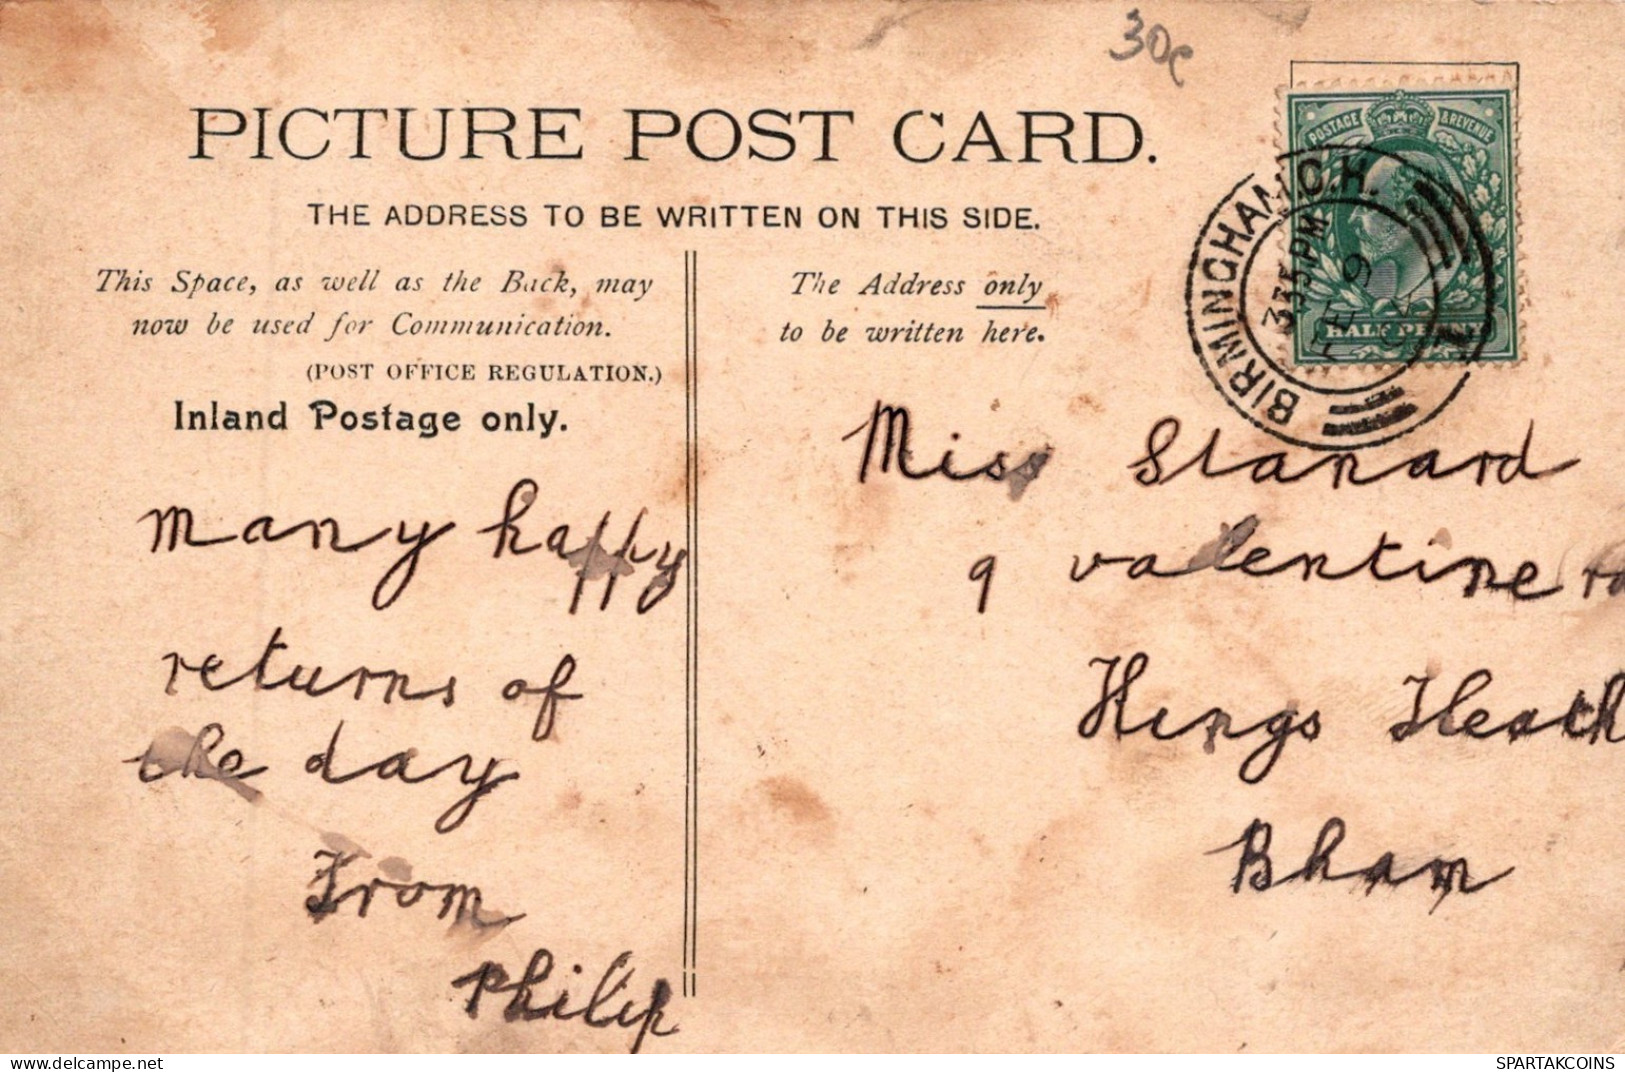 30c
PICTURE POST CARD.
THE ADDRESS TO BE WRITTEN ON THIS SIDE.
This Space, as well as the Back, may
now be used for Communication.
(POST OFFICE REGULATION.)
Inland Postage only.
many happy
returns of
the day
From
Philip
The Address only
to be written here.
POSTAGE & REVENUE
HALF PENNY
BIRMINGHAM. C.H.
335 PM
FE 9
Miss Stanard
9 valentine rd
Kings Heath
Bham
delcampe.net
SPARTAKCOINS